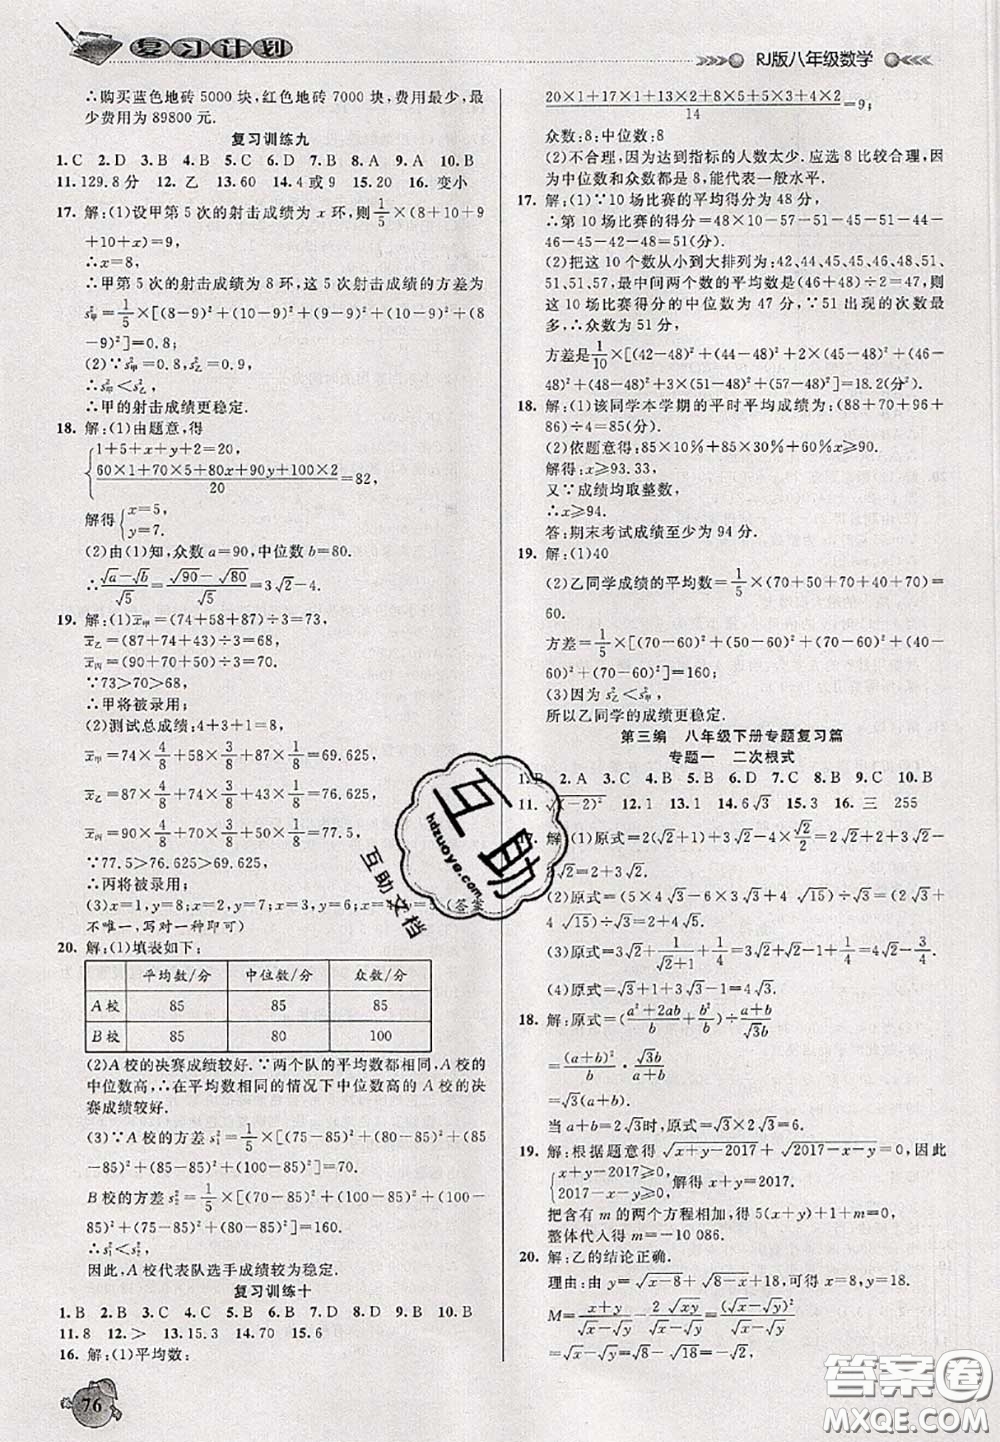 复习计划
RJ版八年级数学
∴购买蓝色地砖 5000 块,红色地砖 7000 块,费用最少,最
少费用为 89800 元.
复习训练九
1. C 2. D 3. C 4. B 5. C 6. D 7. B 8. A 9. A 10. B
11. 129.8 分 12. 乙 13. 60 14. 4 或 9 15. 20 16. 变小
17. 解:(1)设甲第 5 次的射击成绩为 x 环,则 1/5×(8+10+9
+10+x)=9,
∴x=8.
∴甲第 5 次的射击成绩为 8 环,这 5 次射击成绩的方差为
s²甲=1/5×[(8-9)²+(10-9)²+(9-9)²+(10-9)²+(8
-9)²]=0.8;
(2)∵s²甲=0.8,s²乙=2,
∴s²甲<s²乙.
∴甲的射击成绩更稳定.
18. 解:(1)由题意,得
{1+5+x+y+2=20,
(60×1+70×5+80x+90y+100×2)/20=82,
解得{x=5,
y=7.
(2)由(1)知,众数 a=90,中位数 b=80.
∴(√a-√b)/√5=(√90-√80)/√5=3√2-4.
19. 解:(1)x̄甲=(74+58+87)÷3=73,
x̄乙=(87+74+43)÷3=68,
x̄丙=(90+70+50)÷3=70.
∵73>70>68,
∴甲将被录用;
(2)测试总成绩:4+3+1=8,
x̄甲=74×4/8+58×3/8+87×1/8=69.625,
x̄乙=87×4/8+74×3/8+43×1/8=76.625,
x̄丙=90×4/8+70×3/8+50×1/8=77.5,
∵77.5>76.625>69.625,
∴丙将被录用;
(3)x=1,y=8;x=2,y=7;x=3,y=6;x=4,y=5.(答案
不唯一,写对一种即可)
20. 解:(1)填表如下:
平均数/分 中位数/分 众数/分
A 校 85 85 85
B 校 85 80 100
(2)A 校的决赛成绩较好.∵两个队的平均数都相同,A 校的
中位数高,∴在平均数相同的情况下中位数高的 A 校的决
赛成绩较好.
(3)∵A 校的方差 s²₁=1/5×[(75-85)²+(80-85)²+(85
-85)²+(85-85)²+(100-85)²]=70,
B 校的方差 s²₂=1/5×[(70-85)²+(100-85)²+(100-
85)²+(75-85)²+(80-85)²]=160.
∴s²₁<s²₂.
因此,A 校代表队选手成绩较为稳定.
复习训练十
1. B 2. B 3. C 4. A 5. C 6. B 7. B 8. D 9. C 10. B
11. 8 12. > 13. 15.3 14. 70 15. 6
16. 解:(1)平均数:
76
(20×1+17×1+13×2+8×5+5×3+4×2)/14=9;
众数:8;中位数:8
(2)不合理,因为达到指标的人数太少.应选 8 比较合理,因
为中位数和众数都是 8,能代表一般水平.
17. 解:(1)∵10 场比赛的平均得分为 48 分,
∴第 10 场比赛的得分=48×10-57-51-45-51-44-
46-45-42-48=51(分).
(2)把这 10 个数从小到大排列为:42、44、45、45、46、48、51、
51、51、57,最中间两个数的平均数是(46+48)÷2=47,则
这 10 场比赛得分的中位数为 47 分,∵51 出现的次数最
多,∴众数为 51 分,
方差是1/10×[(42-48)²+(44-48)²+2×(45-48)²+
(46-48)²+(48-48)²+3×(51-48)²+(57-48)²]=18.2(分²).
18. 解:(1)该同学本学期的平时平均成绩为:(88+70+96+
86)÷4=85(分).
(2)依题意得:85×10%+85×30%+60%x≥90,
解得:x≥93.33,
又∵成绩均取整数,
∴x≥94.
答:期末考试成绩至少为 94 分.
19. 解:(1)40
(2)乙同学成绩的平均数=1/5×(70+50+70+40+70)=
60.
方差=1/5×[(70-60)²+(50-60)²+(70-60)²+(40-
60)²+(70-60)²]=160;
(3)因为 s²乙<s²甲,
所以乙同学的成绩更稳定.
第三编 八年级下册专题复习篇
专题一 二次根式
1. B 2. A 3. C 4. B 5. B 6. D 7. C 8. B 9. C 10. B
11. √(-2)² 12. 1 13. 1 14. 6√3 15. 3 16. 三 255
17. 解:(1)原式=2(√2+1)+3√2-4×√2/2=2√2+2+3√2-
2√2=2+3√2.
(2)原式=(5×4√3-6×3√3+4√15)÷√3=(2√3+
4√15)÷√3=2+4√5.
(3)原式=√2+1/(√2+1)-1=√2+√2-1-1=2√2-2.
(4)原式=√3+1-√3+1=2.
18. 解:原式=((a²+2ab)/b+b²/b)÷(a+b)/(√3b)
=(a+b)²/b·√3b/(a+b)
=√3(a+b).
当 a+b=2√3时,原式=√3×2√3=6.
19. 解:根据题意得 √(x+y-2017)+√(2017-x-y)=0,因此
{x+y-2017≥0,
2017-x-y≥0,解得 x+y=2017.
把含有 m 的两个方程相加,得 5(x+y)+1+m=0,
整体代入得 m=-10 086.
20. 解:乙的结论正确.
理由:由 y=√(x-8)+√(8-x)+18,可得 x=8,y=18.
M=(x+y)/(√x-√y)-2√xy/(√x-√y)=(√x-√y)²/(√x-√y)
=√x-√y=√8-√18=-√2.
互助
hdzuoye.com
互助文档
答案圈
MXQE.COM